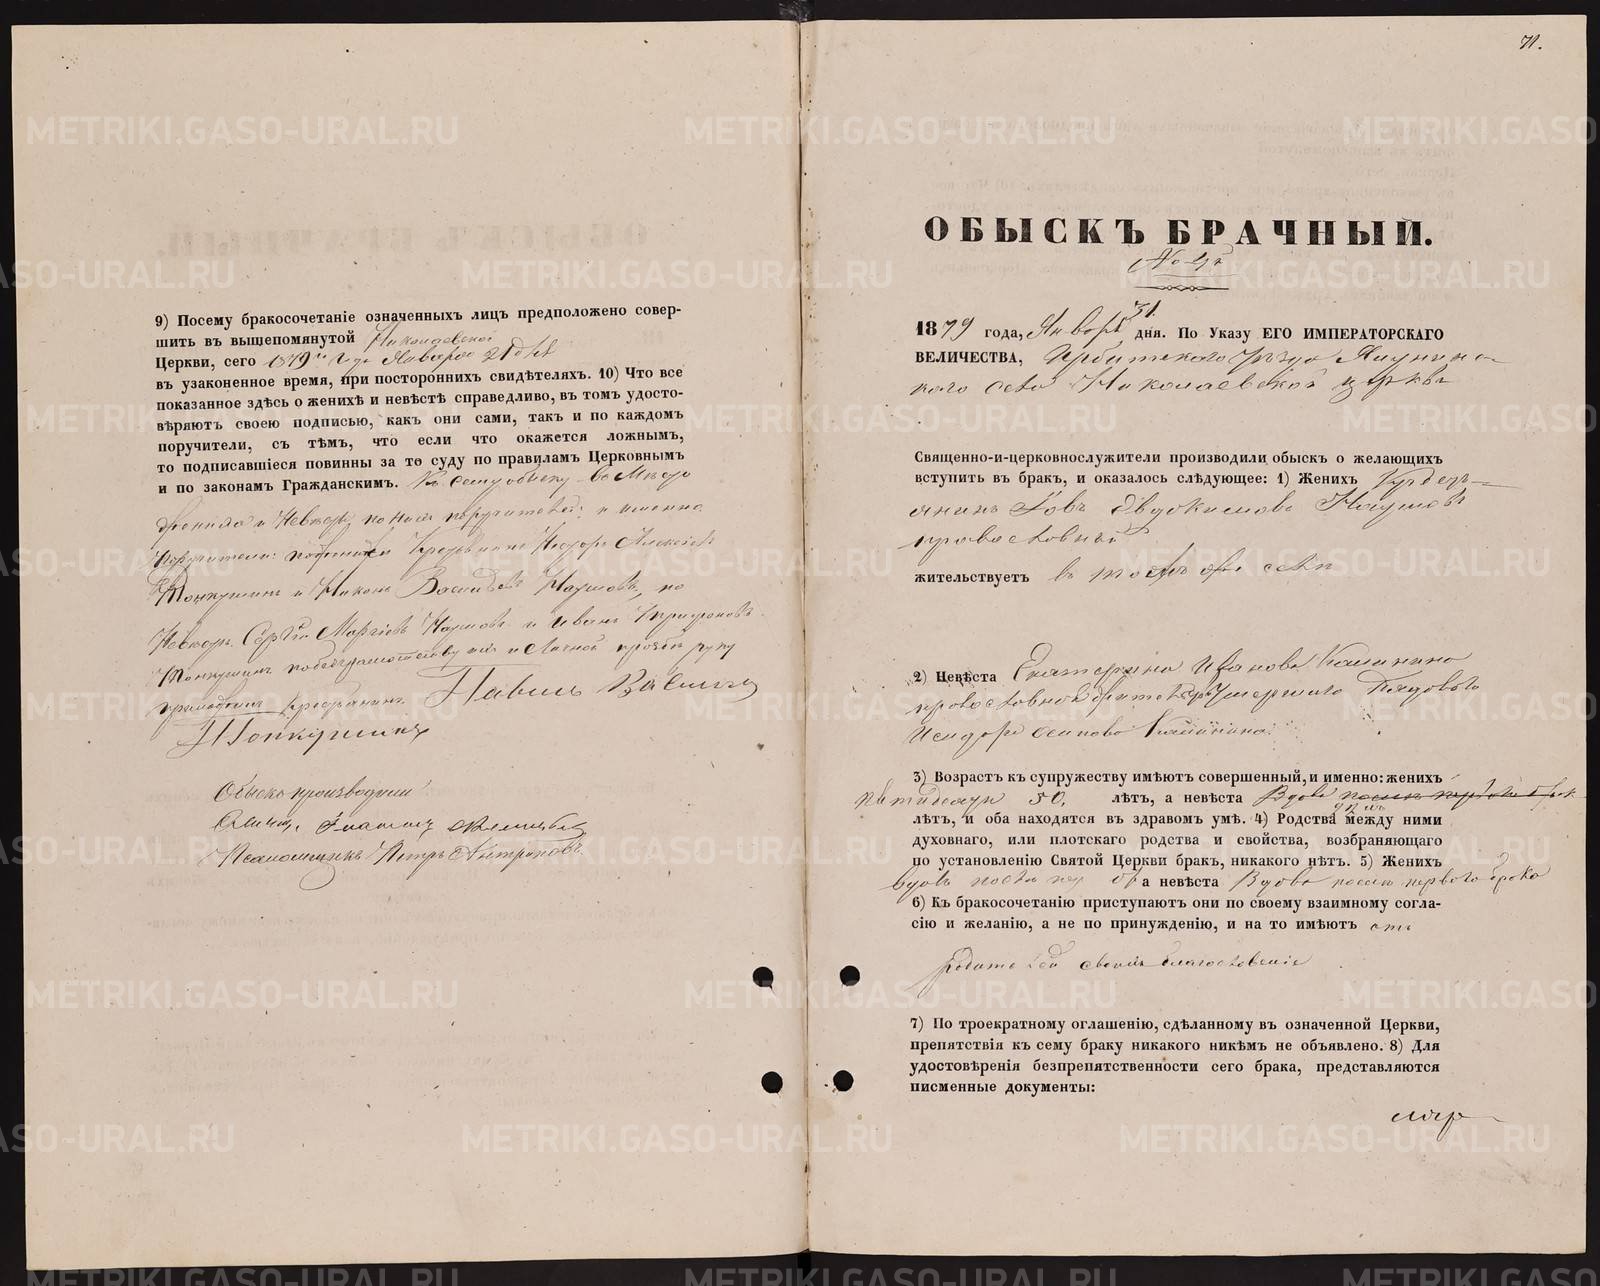 9) Посему бракосочетаніе означенныхъ лицъ предположено совер-
шить въ вышепомянутой Николаевской
Церкви, сего 1879 года Января 21 дня
въ узаконенное время, при постороннихъ свидѣтеляхъ. 10) Что все
показанное здѣсь о женихѣ и невѣстѣ справедливо, въ томъ удосто-
вѣряютъ своею подписью, какъ они сами, такъ и по каждомъ
поручители, съ тѣмъ, что если что окажется ложнымъ,
то подписавшіеся повинны за то суду по правиламъ Церковнымъ
и по законамъ Гражданскимъ. Къ сему обыску вмѣсто
жениха и невѣсты, по нихъ поручителей: и именно
поручители: по женихѣ Крестьянинъ Ѳедоръ Алексѣевъ
и Никонъ Васильевъ Наумовъ, по
невѣстѣ Сергѣй Наумовъ и Иванъ
по безграмотству ихъ и личной прозьбѣ руку
приложилъ крестьянинъ Павелъ
Обыскъ производили
Псаломщикъ Петръ Антроповъ
71.
ОБЫСКЪ БРАЧНЫЙ.
1879 года, Январь 31. дня. По Указу ЕГО ИМПЕРАТОРСКАГО
ВЕЛИЧЕСТВА, Ирбитскаго уѣзда
села Николаевской церкви
Священно-и-церковнослужители производили обыскъ о желающихъ
вступить въ бракъ, и оказалось слѣдующее: 1) Женихъ
Евдокимовъ Наумовъ
православный
жительствуетъ въ томъ же селѣ
2) Невѣста Екатерина Иванова Калинина
православной умершаго рядоваго
Исидора Осипова Калинина
3) Возрастъ къ супружеству имѣютъ совершенный, и именно: женихъ
пятидесяти 50. лѣтъ, а невѣста
лѣтъ, и оба находятся въ здравомъ умѣ. 4) Родства между ними
духовнаго, или плотскаго родства и свойства, возбраняющаго
по установленію Святой Церкви бракъ, никакого нѣтъ. 5) Женихъ
вдовъ послѣ пер бр а невѣста Вдова послѣ перваго брака
6) Къ бракосочетанію приступаютъ они по своему взаимному согла-
сію и желанію, а не по принужденію, и на то имѣютъ отъ
родителей своихъ благословеніе
7) По троекратному оглашенію, сдѣланному въ означенной Церкви,
препятствія къ сему браку никакого никѣмъ не объявлено. 8) Для
удостовѣренія безпрепятственности сего брака, представляются
писменные документы:
METRIKI.GASO-URAL.RU